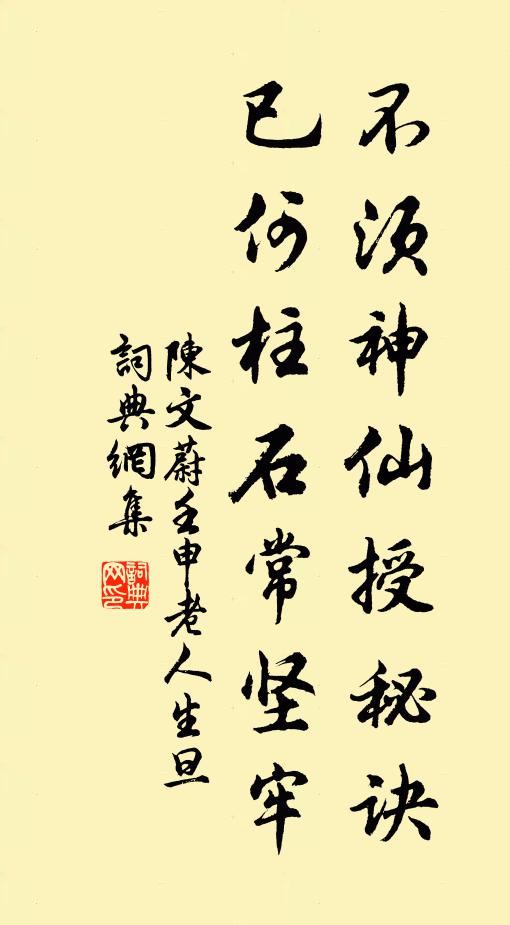 不须神仙授秘诀
已何柱石常坚牢
陳文蔚壬申老人生旦
詞典網集
詞典网印